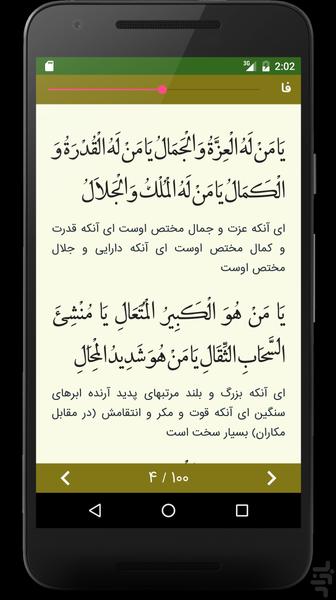 3G 2:02
فا
يَا مَنْ لَهُ الْعِزَّةُ وَ الْجَمَالُ يَا مَنْ لَهُ الْقُدْرَةُ وَ
الْكَمَالُ يَا مَنْ لَهُ الْمُلْكُ وَ الْجَلاَلُ
ای آنکه عزت و جمال مختص اوست ای آنکه قدرت
و کمال مختص اوست ای آنکه دارایی و جلال
مختص اوست
يَا مَنْ هُوَ الْكَبِيرُ الْمُتَعَالِ يَا مُنْشِئَ
السَّحَابِ الثِّقَالِ يَا مَنْ هُوَ شَدِيدُ الْمِحَالِ
ای آنکه بزرگ و بلند مرتبهای پدید آرنده ابرهای
سنگین ای آنکه قوت و مکر و انتقامش (در مقابل
مکاران) بسیار سخت است
۴ / ۱۰۰